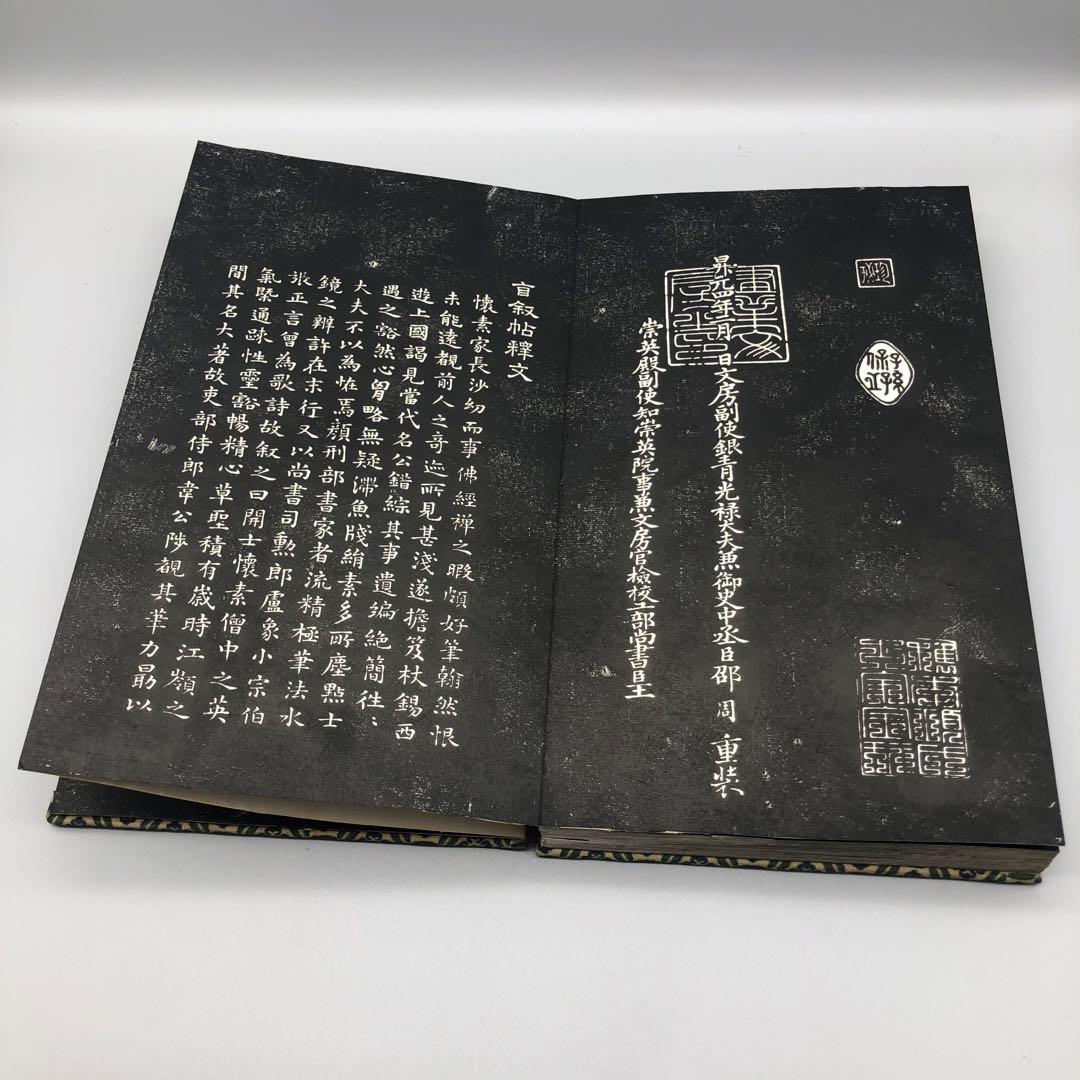 昇元四年二月 日文房副使銀青光祿大夫兼御史中丞臣邵周 重裝
崇英殿副使知崇英院事兼文房官檢校工部尚書臣王
建業文房之印
自叙帖釋文
懷素家長沙幼而事佛經禪之暇頗好筆翰然恨
未能遠覩前人之奇迹所見甚淺遂擔笈杖錫西
遊上國謁見當代名公錯綜其事遺編絶簡往〻
遇之豁然心胷略無疑滯魚牋絹素多所塵點士
大夫不以為恠焉顔刑部書家者流精極筆法水
鏡之辨許在末行又以尚書司勲郎盧象小宗伯
張正言曾為歌詩故叙之曰開士懷素僧中之英
氣槩通疎性靈豁暢精心草聖積有歲時江嶺之
間其名大著故吏部侍郎韋公陟覩其筆力勗以